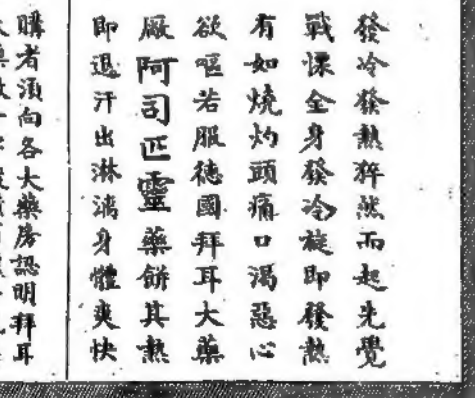 發冷發熱猝然而起先覺
戰慄全身發冷旋即發熱
有如燒灼頭痛口渴惡心
欲嘔若服德國拜耳大藥
厰阿司匹靈藥餅其熱
即退汗出淋漓身體爽快
購者須向各大藥房認明拜耳